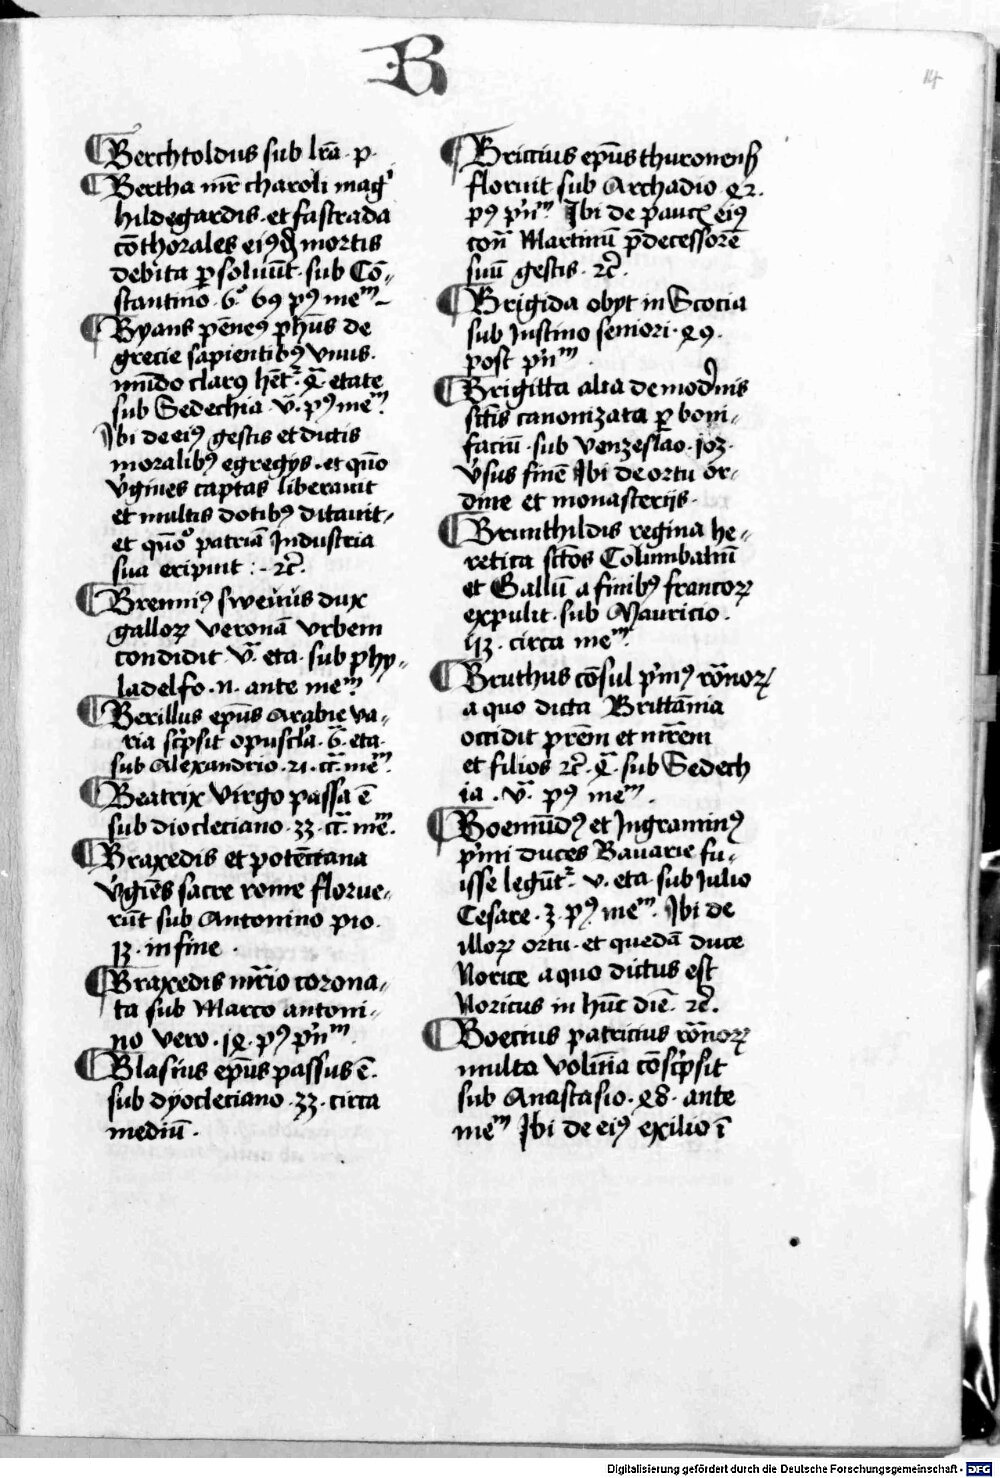 B
14
Berchtoldus sub lrā · p ·
Bertha mr̄ charoli mag᾽
hildegardis · et fastrada
cōthorales eiꝰdē mortis
debita ꝑsoluūt · sub Cō-
stantino · 6º · 69 pꝰ meᵐ
Byans pēneꝰ phūs de
grecie sapientibꝰ vnus ·
mūdo clarꝰ hēt᷑ · 4ᵃ etate
sub Sedechia · vᵃ · pꝰ meᵐ
Ibi de eiꝰ gestis et dictis
moralibꝰ egregijs · et quō
v̓gines captas liberauit
et multis dotibꝰ ditauit ·
et quō patriā Industria
sua eripuit : - ⁊c̄ ·
Brenniꝰ sweuus dux
galloꝝ veronā vrbem
condidit · vᵃ · eta · sub phy-
ladelfo · 11 · ante meᵐ
Berillus epūs Arabie va-
ria sc̓psit opuscła · 6ᵃ · eta ·
sub Alexandrio · 21 · cᵃ · meᵐ
Beatrix virgo passa ē
sub diocleciano · 33 · cᵃ · meᵐ ·
Braxedis et potēciana
v̓gīes sacre rome florue-
rūt sub Antonino pio ·
13 · in fine ·
Braxedis mr̄io corona-
ta sub Marco antoni-
no vero · 14 · pꝰ pn̓ᵐ ·
Blasius epūs passus ē ·
sub dyocleciano · 33 · circa
mediū ·
Briccius epūs thuronensꝭ
floruit sub Archadio · 42 ·
pꝰ pn̓ᵐ Ibi de paucꝭ eiꝰ
cōn Martinū p̄decessorē
suū gestis · ⁊c̄ ·
Brigida obyt in Scocia
sub Justino seniori · 49 ·
post pn̓ᵐ ·
Brigitta alia de mod̓nis
sctīs canonizata ꝑ boni-
faciū · sub venzeslao · 103 ·
v̓sus finē Ibi de ortu or-
dine et monasterijs ·
Brunthildis regina he-
retica sctōs Columbanū
et Gallū a finibꝰ francoꝝ
expulit · sub Mauricio ·
circa meᵐ
Bruthus cōsul p̓mꝰ rōnoꝝ
a quo dicta Brittānia
occidit prēm et mr̄em
et filios ⁊c̄ · 4ᵃ · sub Sedech
ia · vᵃ · pꝰ meᵐ ·
Boemūdꝰ et Ingraminꝰ
p̓mi duces Bauarie fu-
isse legūt᷑ · v · eta · sub Julio
Cesare · 3 · pꝰ meᵐ · Ibi de
illoꝝ ortu · et quedā duce
Norice a quo dictus est
Noricus in hūc diē · ⁊c̄ ·
Boecius patricius rōnoꝝ
multa volūia cōsc̓psit
sub Anastasio · 48 · ante
meᵐ Ibi de eiꝰ exilio ī
Digitalisierung gefördert durch die Deutsche Forschungsgemeinschaft - DFG